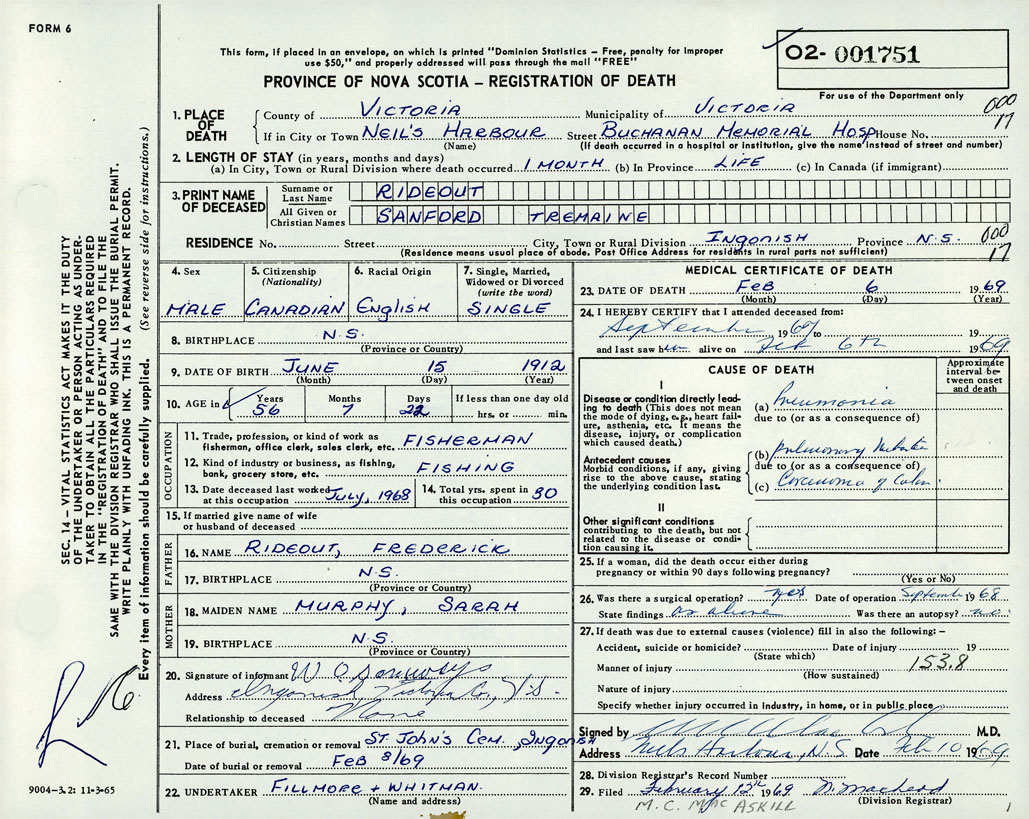 FORM 6
This form, if placed in an envelope, on which is printed "Dominion Statistics - Free, penalty for improper
use $50," and properly addressed will pass through the mail "FREE"
PROVINCE OF NOVA SCOTIA - REGISTRATION OF DEATH
02- 001751
For use of the Department only
000
17
1. PLACE OF DEATH
County of VICTORIA Municipality of VICTORIA
If in City or Town NEIL'S HARBOUR Street BUCHANAN MEMORIAL HOSP House No.
(Name) (If death occurred in a hospital or institution, give the name instead of street and number)
2. LENGTH OF STAY (in years, months and days)
(a) In City, Town or Rural Division where death occurred 1 MONTH (b) In Province LIFE (c) In Canada (if immigrant)
3. PRINT NAME OF DECEASED
Surname or Last Name RIDEOUT
All Given or Christian Names SANFORD TREMAINE
RESIDENCE No. Street City, Town or Rural Division INGONISH Province N.S. 000
17
(Residence means usual place of abode. Post Office Address for residents in rural parts not sufficient)
4. Sex
MALE
5. Citizenship
(Nationality)
CANADIAN
6. Racial Origin
English
7. Single, Married,
Widowed or Divorced
(write the word)
SINGLE
8. BIRTHPLACE N.S.
(Province or Country)
9. DATE OF BIRTH JUNE 15 1912
(Month) (Day) (Year)
10. AGE in Years Months Days If less than one day old
56 7 22 hrs. or min.
OCCUPATION
11. Trade, profession, or kind of work as
fisherman, office clerk, sales clerk, etc. FISHERMAN
12. Kind of industry or business, as fishing,
bank, grocery store, etc. FISHING
13. Date deceased last worked
at this occupation July, 1968
14. Total yrs. spent in
this occupation 30
15. If married give name of wife
or husband of deceased
FATHER
16. NAME RIDEOUT, FREDERICK
17. BIRTHPLACE N.S.
(Province or Country)
MOTHER
18. MAIDEN NAME MURPHY, SARAH
19. BIRTHPLACE N.S.
(Province or Country)
20. Signature of informant W
Address Ingonish, Victoria Co., N.S.
Relationship to deceased None
21. Place of burial, cremation or removal ST. JOHN'S CEM., Ingonish
Date of burial or removal FEB 8/69
22. UNDERTAKER FILLMORE + WHITMAN.
(Name and address)
MEDICAL CERTIFICATE OF DEATH
23. DATE OF DEATH FEB 6 1969
(Month) (Day) (Year)
24. I HEREBY CERTIFY that I attended deceased from:
September 1967 to 19
and last saw him alive on Feb 6th 1969
CAUSE OF DEATH
Approximate
interval be-
tween onset
and death
I
Disease or condition directly lead-
ing to death (This does not mean
the mode of dying, e.g., heart fail-
ure, asthenia, etc. It means the
disease, injury, or complication
which caused death.)
(a) Pneumonia
due to (or as a consequence of)
Antecedent causes
Morbid conditions, if any, giving
rise to the above cause, stating
the underlying condition last.
(b) pulmonary
due to (or as a consequence of)
(c) Carcinoma of Colon
II
Other significant conditions
contributing to the death, but not
related to the disease or condi-
tion causing it.
25. If a woman, did the death occur either during
pregnancy or within 90 days following pregnancy?
(Yes or No)
26. Was there a surgical operation? yes Date of operation September 1968
State findings as above Was there an autopsy? no.
27. If death was due to external causes (violence) fill in also the following: -
Accident, suicide or homicide? Date of injury 19
(State which)
153.8
Manner of injury
(How sustained)
Nature of injury
Specify whether injury occurred in industry, in home, or in public place
Signed by M.D.
Address Neils Harbour, N.S. Date Feb 10 1969
28. Division Registrar's Record Number
29. Filed February 12th 1969
(Division Registrar)
M.C. MACASKILL
1
SEC. 14 - VITAL STATISTICS ACT MAKES IT THE DUTY
OF THE UNDERTAKER OR PERSON ACTING AS UNDER-
TAKER TO OBTAIN ALL THE PARTICULARS REQUIRED
IN THE "REGISTRATION OF DEATH" AND TO FILE THE
SAME WITH THE DIVISION REGISTRAR WHO SHALL ISSUE THE BURIAL PERMIT.
WRITE PLAINLY WITH UNFADING INK. THIS IS A PERMANENT RECORD.
Every item of information should be carefully supplied. (See reverse side for instructions.)
9004-3.2: 11-3-65